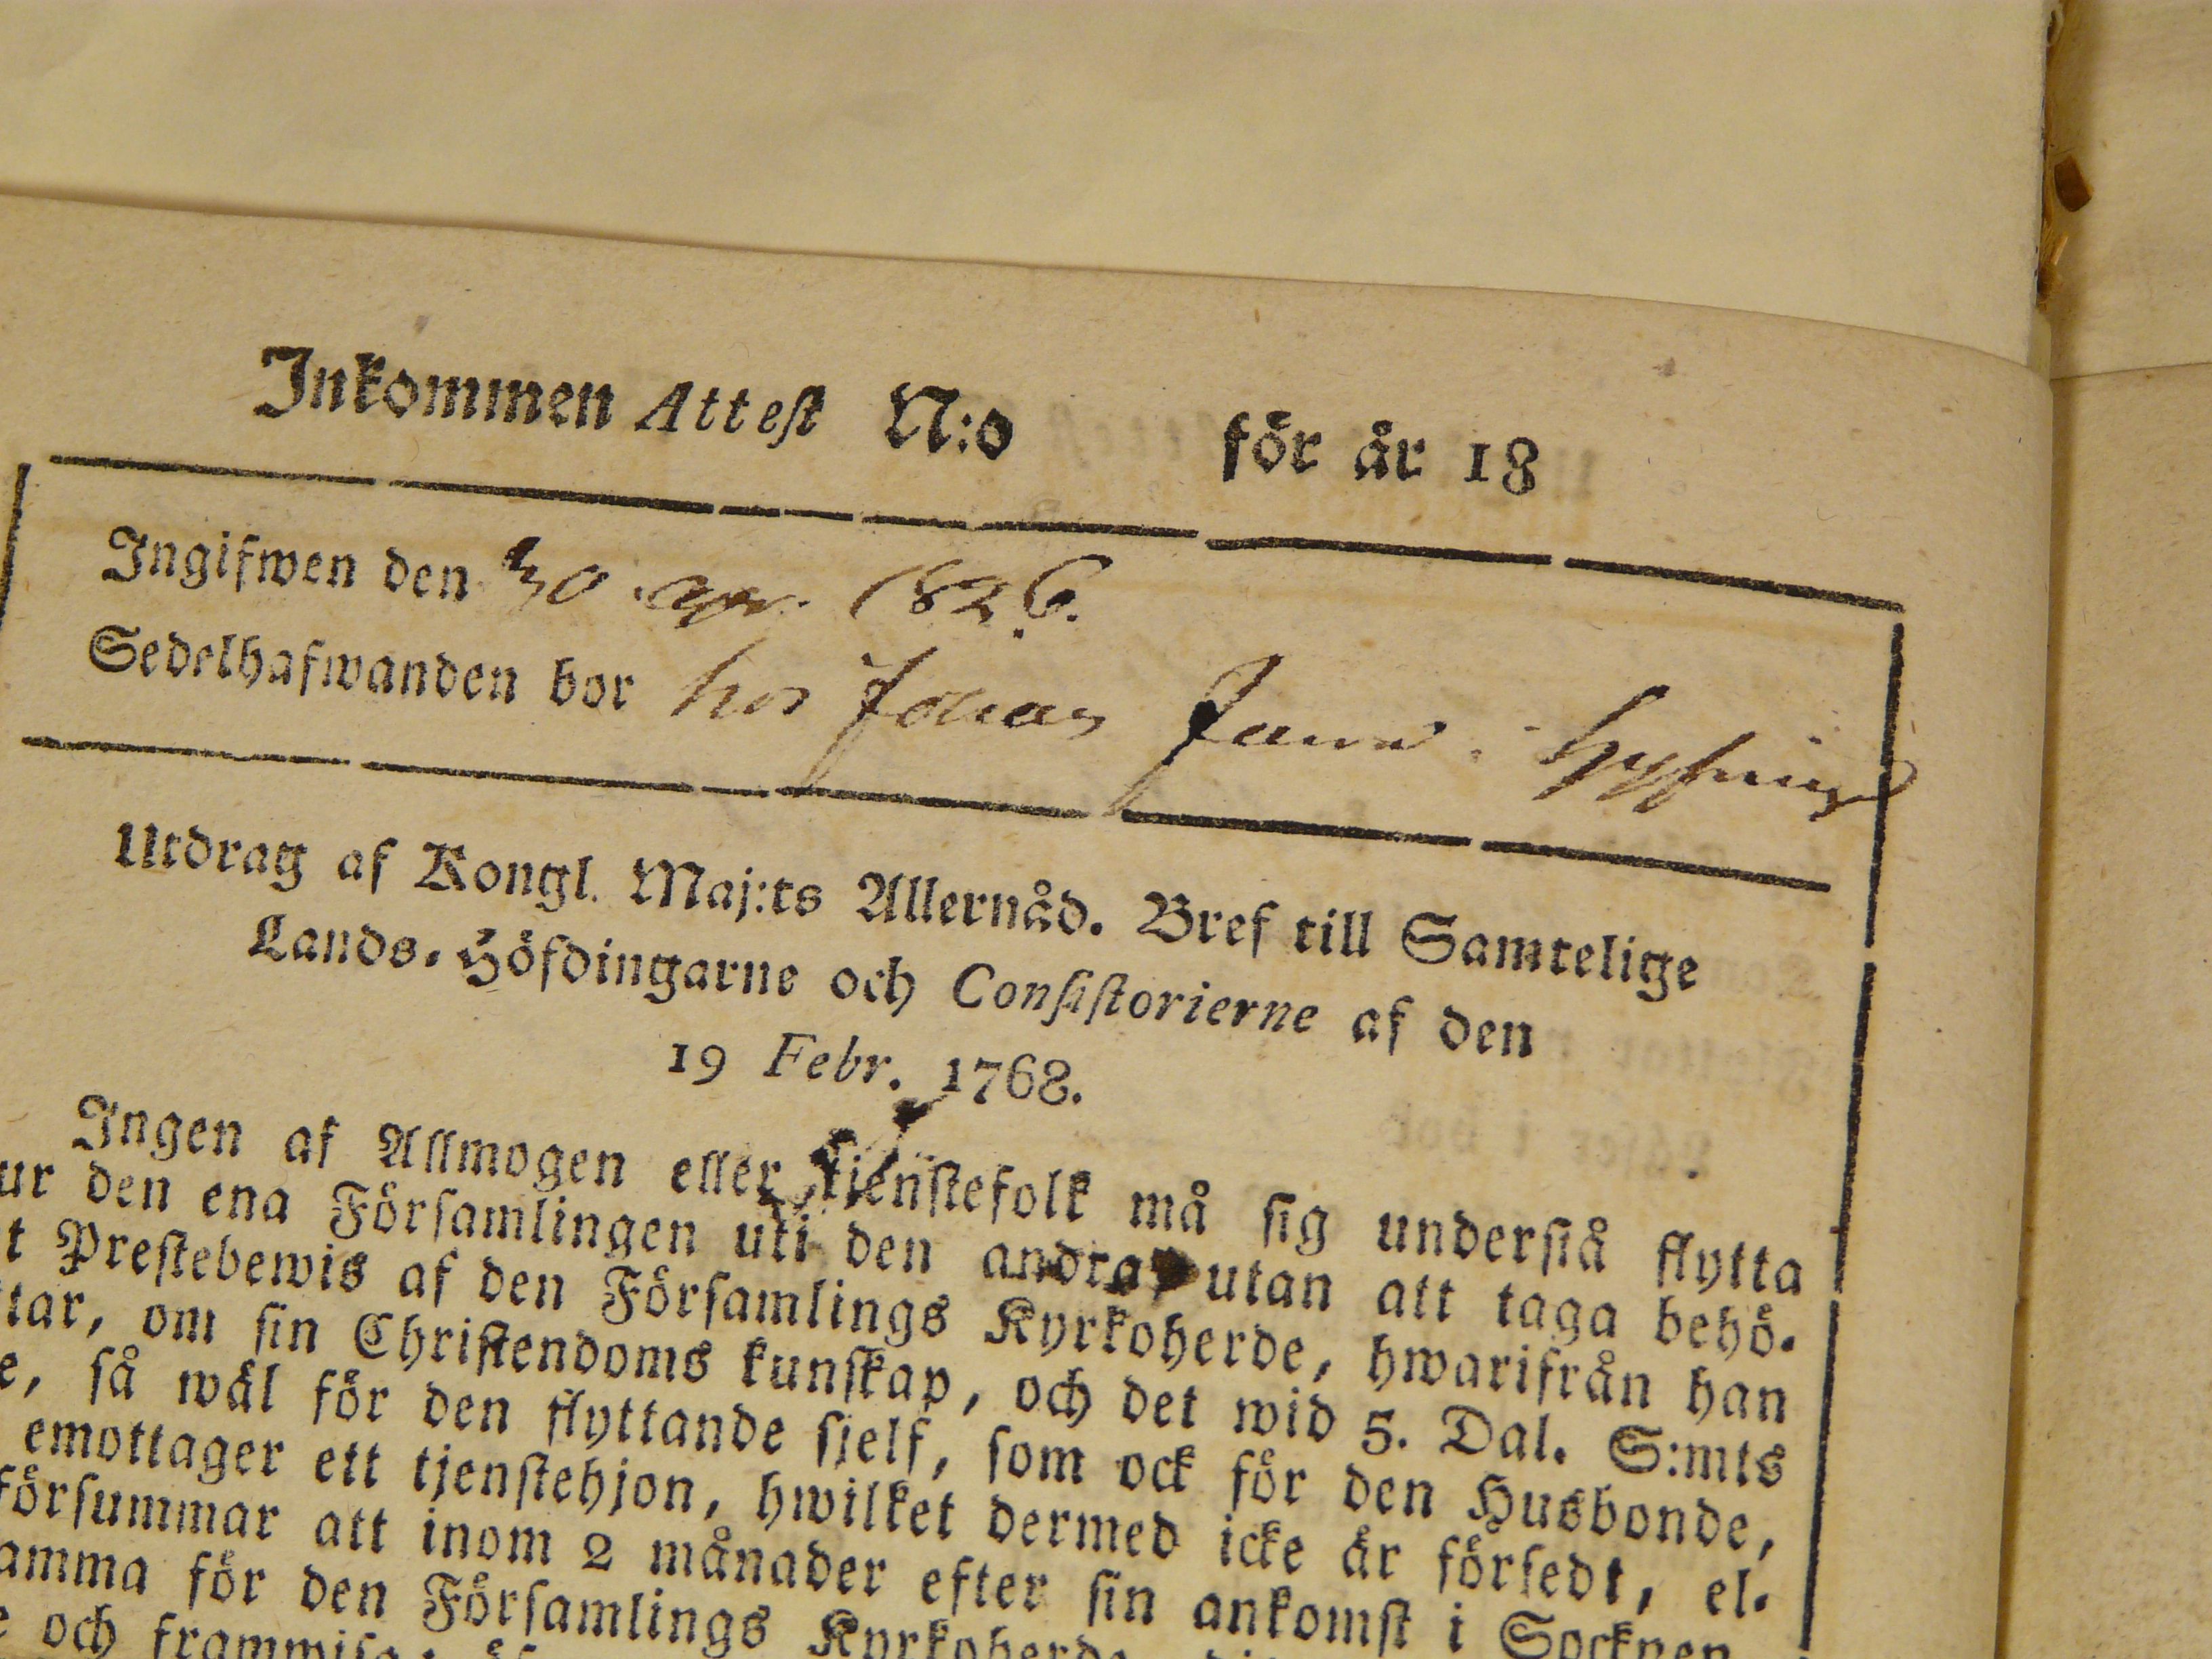 Inkommen Attest N:o för år 18
Ingifwen den 30 apr. 1826.
Sedelhafwanden bor hos Johan i
Utdrag af Kongl. Maj:ts Allernåd. Bref till Samtelige
Lands-Höfdingarne och Consistorierne af den
19 Febr. 1768.
Ingen af Allmogen eller tjenstefolk må sig understå flytta
ur den ena Församlingen uti den andra, utan att taga behö-
t Prestebewis af den Församlings Kyrkoherde, hwarifrån han
ttar, om sin Christendoms kunskap, och det wid 5. Dal. S:mts
e, så wäl för den flyttande sjelf, som ock för den Husbonde,
emottager ett tjenstehjon, hwilket dermed icke är försedt, el-
försummar att inom 2 månader efter sin ankomst i Socknen
amma för den Församlings Kyrkoherde
e och framwisa